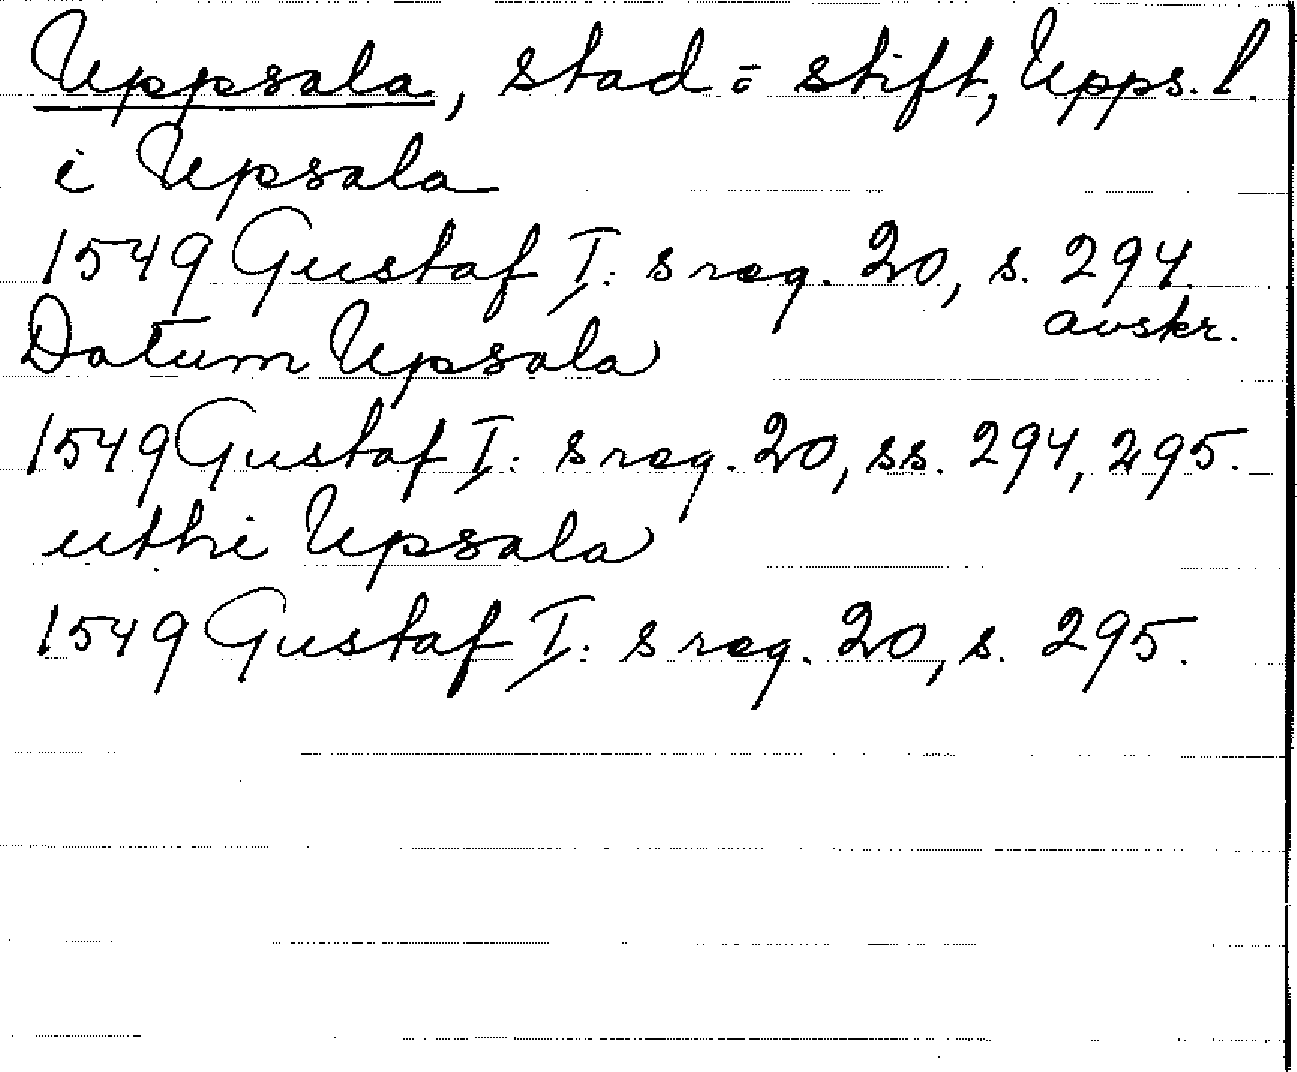 Uppsala, stad o. stift, Upps. l.
i Upsala
1549 Gustaf I: s reg. 20, s. 294.
avskr.
Datum Upsala
1549 Gustaf I: s reg. 20, ss. 294, 295.
uthi Upsala
1549 Gustaf I: s reg. 20, s. 295.